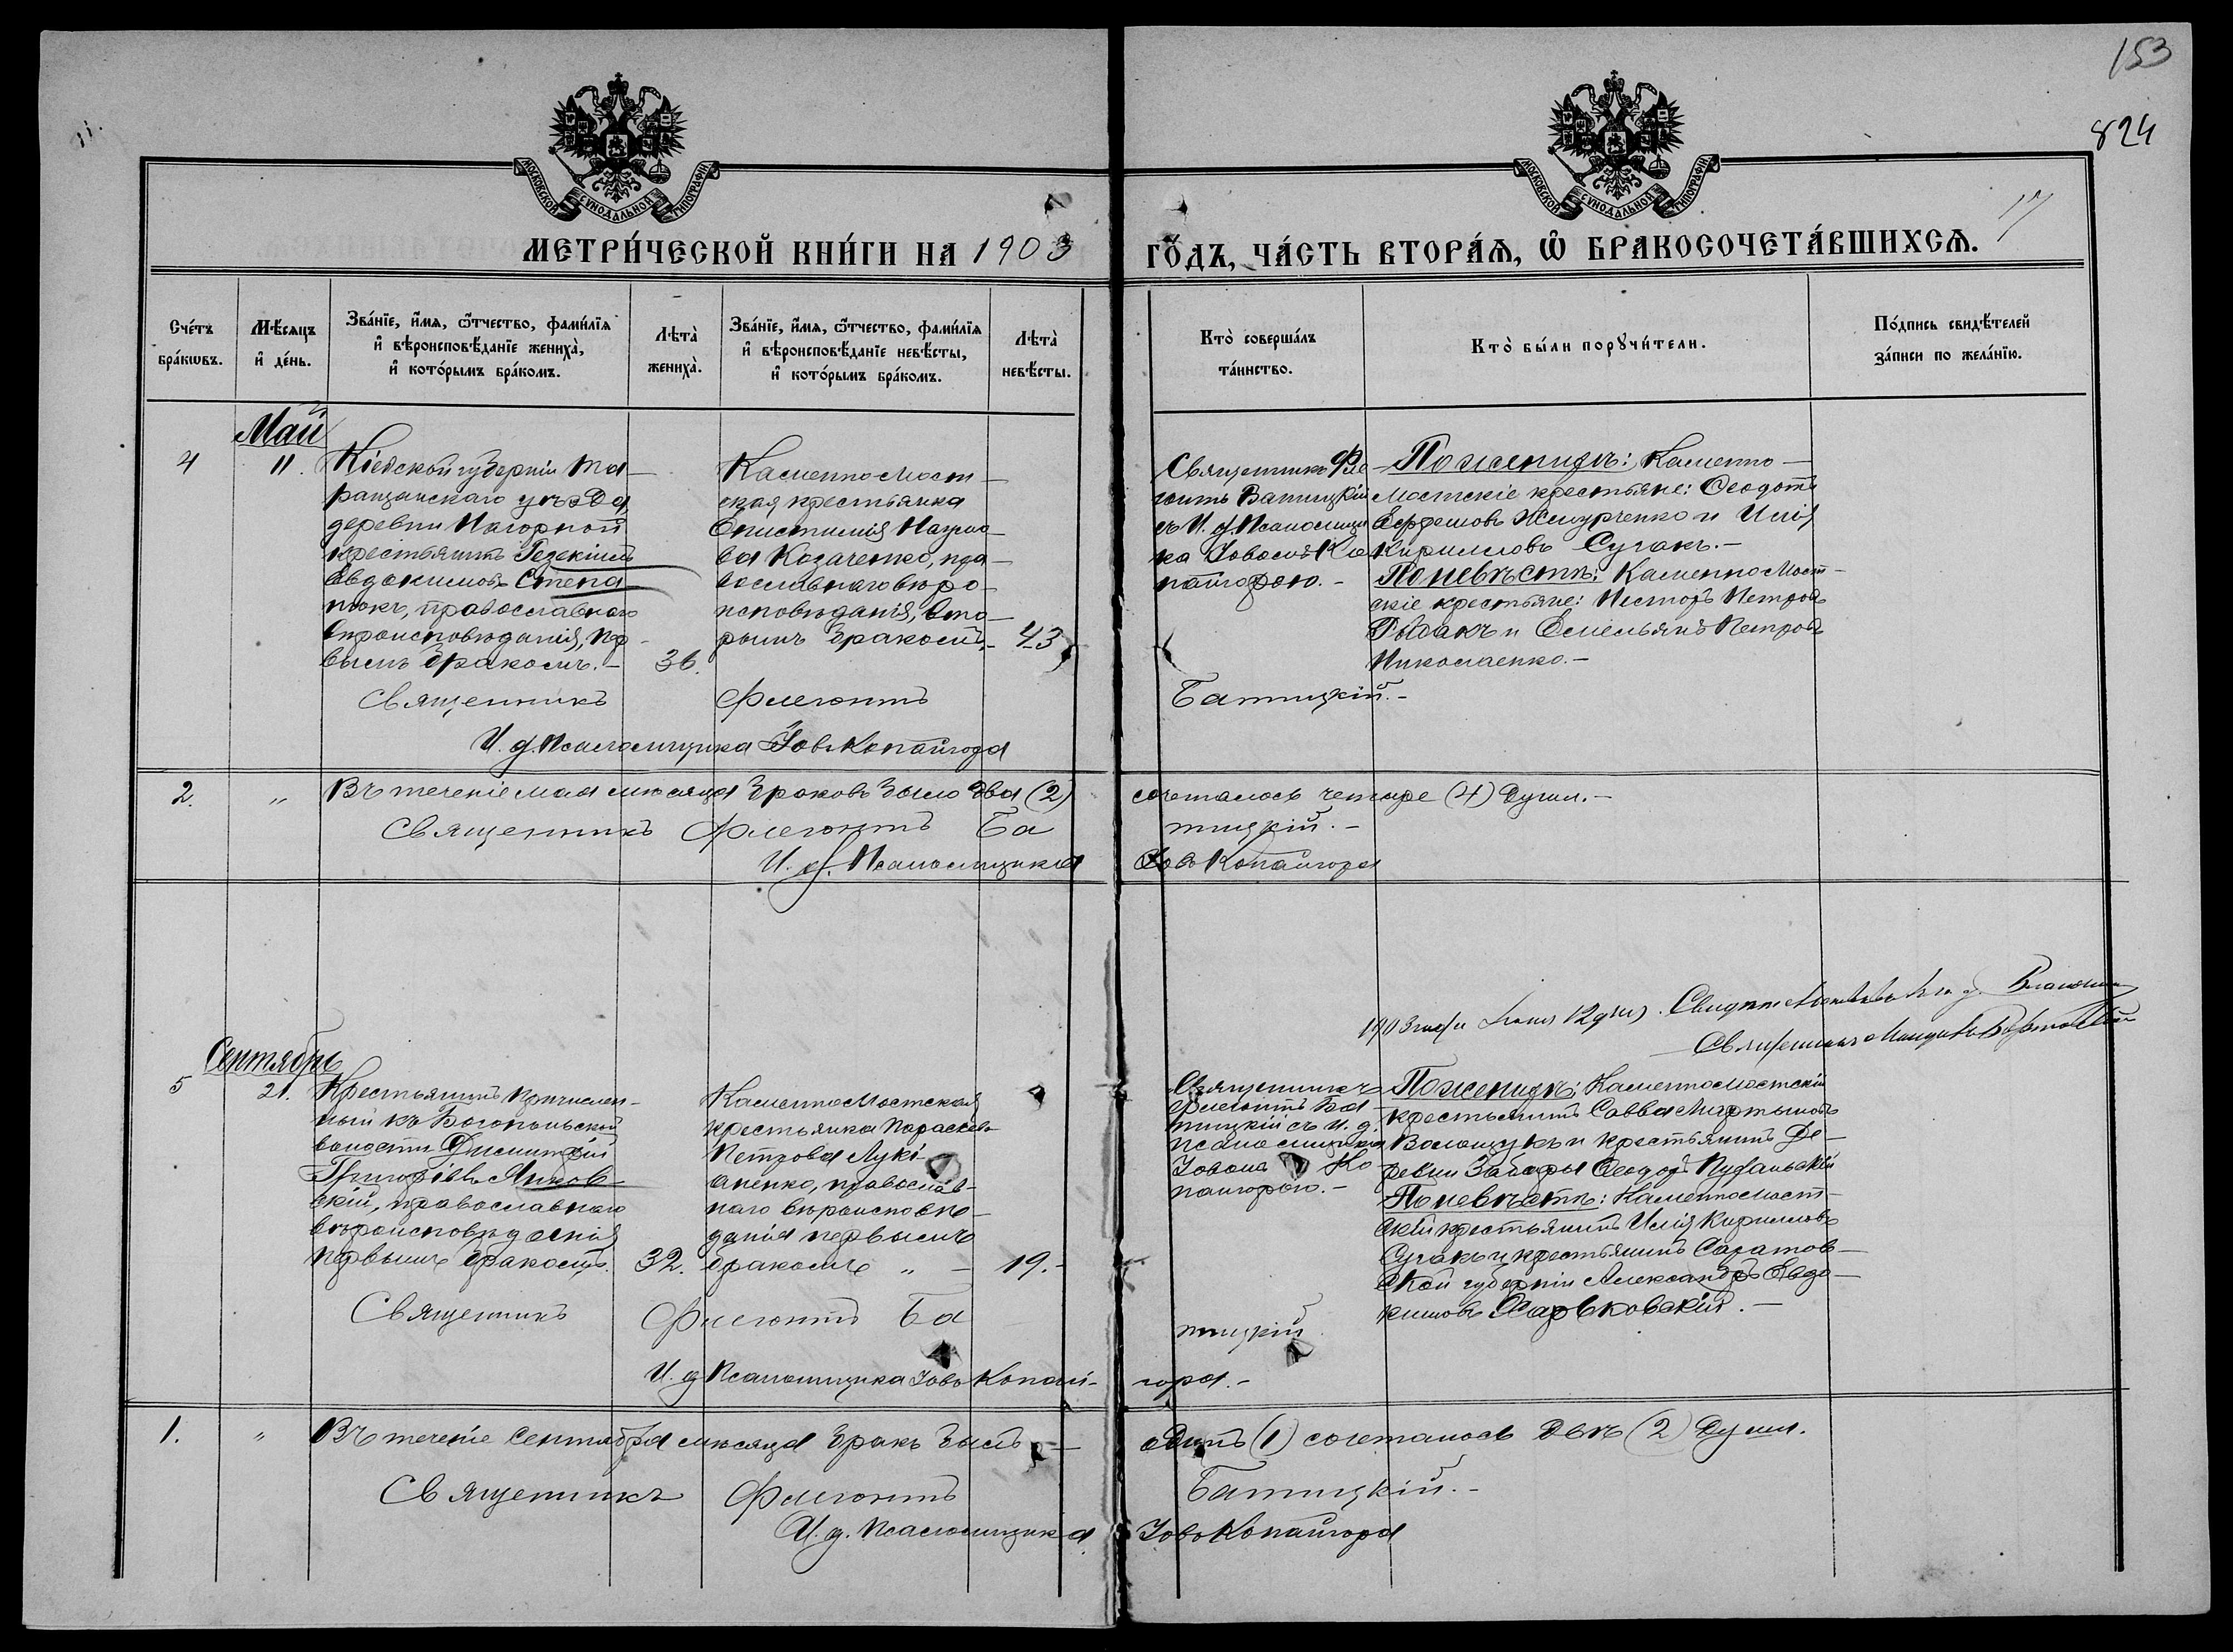 153
824
11.
17
МОСКОВСКОЙ СѴНОДАЛЬНОЙ ТИПОГРАФІИ
МОСКОВСКОЙ СѴНОДАЛЬНОЙ ТИПОГРАФІИ
МЕТРИ́ЧЕСКОЙ КНИ́ГИ НА 1903 ГО́ДЪ, ЧА́СТЬ ВТОРА́Ѧ, Ѽ БРАКОСОЧЕТА́ВШИХСѦ.
Сче́тъ
бра́кѡвъ.
Мѣ́сѧцъ
и҆ де́нь.
Зва́нїе, и҆́мѧ, ѻ҆́тчество, фами́лїѧ
и҆ вѣроисповѣ́данїе жениха̀,
и҆ кото́рымъ бра́комъ.
Лѣта̀
жениха̀.
Зва́нїе, и҆́мѧ, ѻ҆́тчество, фами́лїѧ
и҆ вѣроисповѣ́данїе невѣ́сты,
и҆ кото́рымъ бра́комъ.
Лѣта̀
невѣ́сты.
Кто̀ соверша́лъ
та́инство.
Кто̀ бы́ли порꙋчи́тели.
По́дпись свидѣ́телей
за́писи по жела́нїю.
Май
4
11.
Кіевской губерніи Та-
ращанскаго уѣзда,
деревни Нагорной
крестьянинъ Іезекіиль
Евдокимовъ Степа-
нюкъ, православнаго
вѣроисповѣданія, пер-
вымъ бракомъ.-
36.
КаменноМост-
ская крестьянка
Епистимія Наумо-
ва Козаченко, пра-
вославнаго вѣро-
исповѣданія, вто-
рымъ бракомъ.-
43
Священникъ Фле-
гонтъ Батицкій
съ И. д. Псаломщи
ка Іовомъ Ко
пайгорою.-
По женихѣ: Каменно-
Мостскіе крестьяне: Ѳеодотъ
Ефремовъ Жмурченко и Илія
Кирилловъ Сугакъ.-
По невѣстѣ: КаменноМост-
скіе крестьяне: Несторъ Петровъ
и Емельянъ Петровъ
Николаенко.-
Священникъ Флегонтъ Батицкій.-
И. д. Псаломщика Іовъ Копайгора
2.
"
Въ теченіе мая мѣсяца браковъ было два (2) сочеталось четыре (4) души.-
Священникъ Флегонтъ Батицкій.-
И. д. Псаломщика Іовъ Копайгора
1903 года 12 дня.
Священникъ
Сентябрь
5
21.
Крестьянинъ причислен-
ный къ Богопольской
волости Димитрій
Григорьевъ Янков-
скій, православнаго
вѣроисповѣданія
первымъ бракомъ.
32.
КаменноМостская
крестьянка Параскева
Петрова Лукі-
аненко, православ-
наго вѣроисповѣ-
данія первымъ
бракомъ " -
19.-
Священникъ
Флегонтъ Ба-
тицкій съ И. д.
Псаломщика
Іовомъ Ко-
пайгорою.-
По женихѣ: КаменноМостскій
крестьянинъ Савва Мартыновъ
Волощукъ и крестьянинъ Де-
ревни Ѳеодоръ
По невѣстѣ: КаменноМост-
скій крестьянинъ Илія Кирилловъ
Сугакъ и крестьянинъ Саратов-
ской губерніи Александръ Евдо-
кимовъ Харьковскій.-
Священникъ Флегонтъ Батицкій
И. д. Псаломщика Іовъ Копай-гора.-
1.
"
Въ теченіе Сентября мѣсяца бракъ былъ - одинъ (1) сочеталось двѣ (2) души.
Священникъ Флегонтъ Батицкій.-
И. д. Псаломщика Іовъ Копайгора